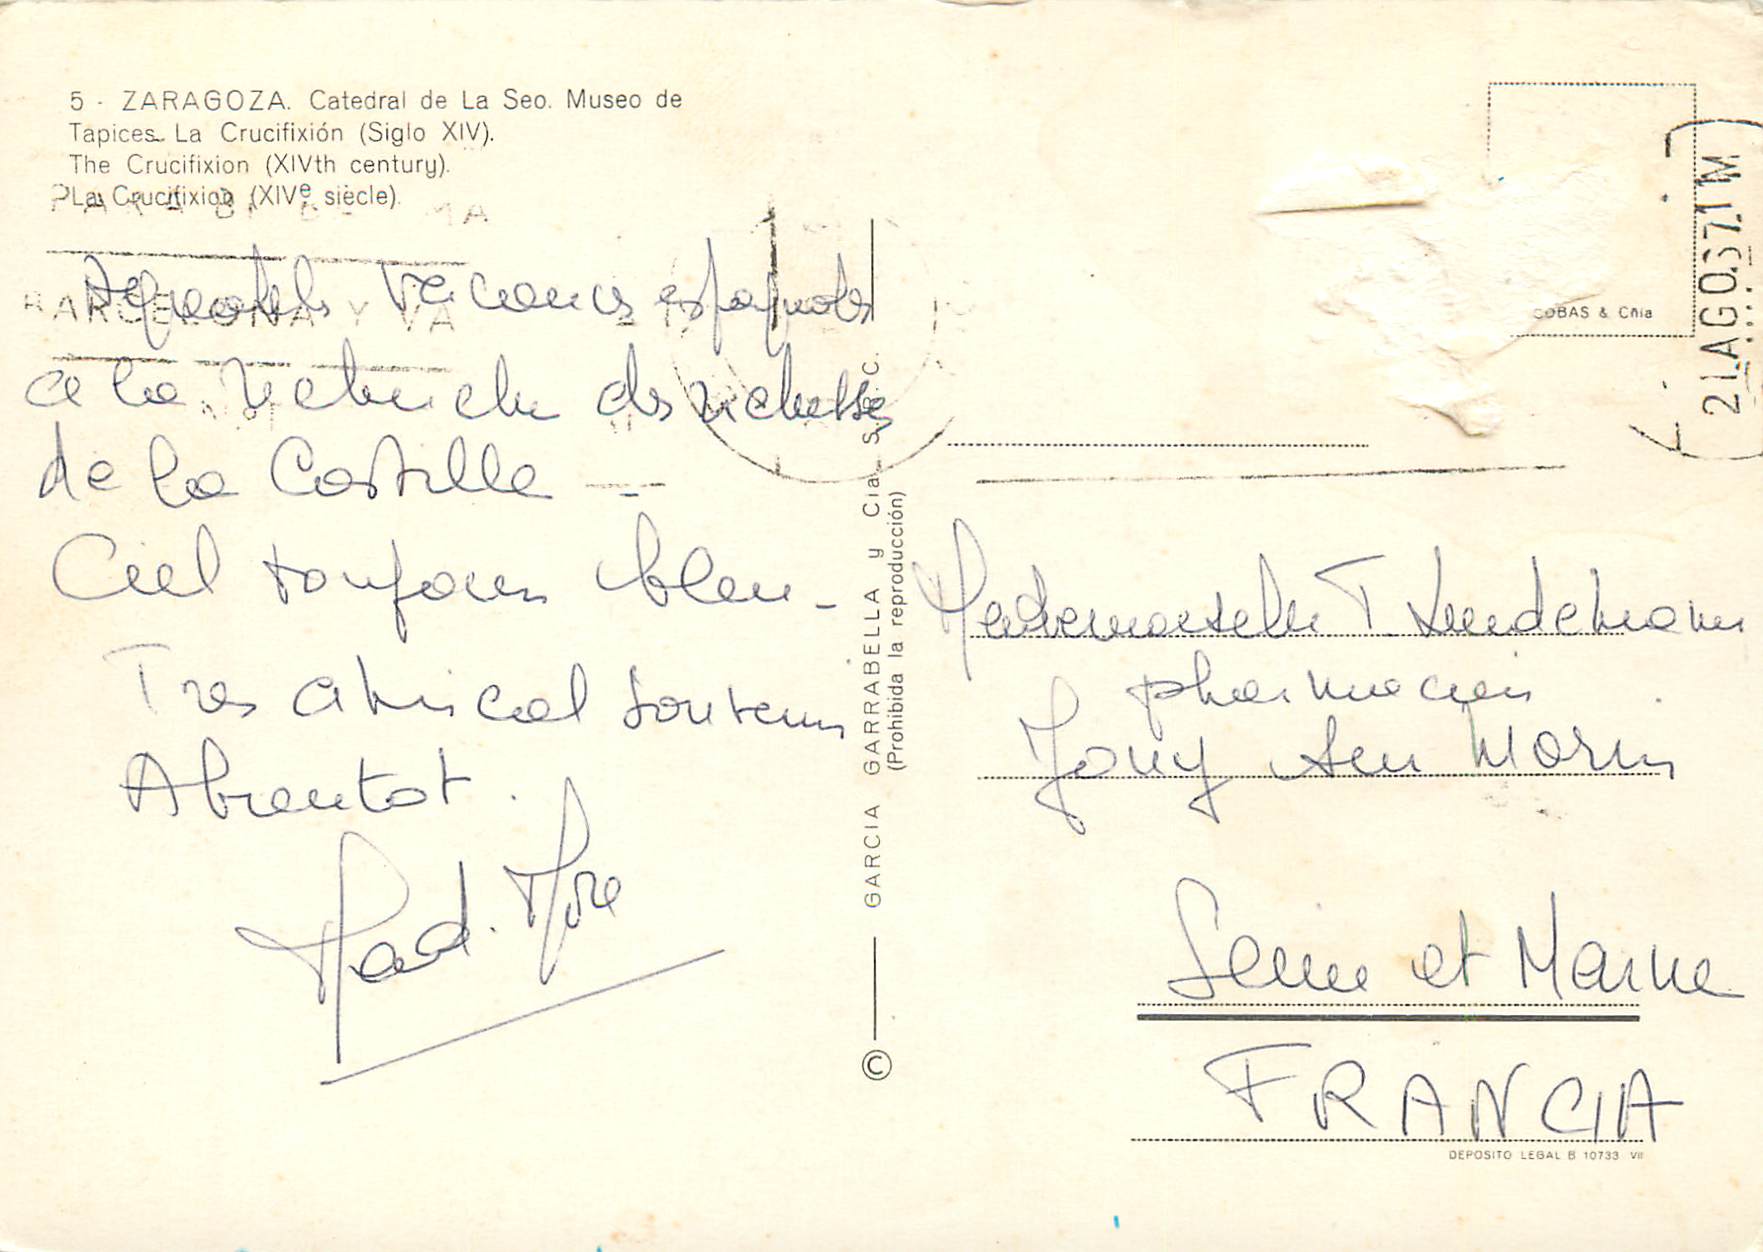 5 - ZARAGOZA. Catedral de La Seo. Museo de
Tapices. La Crucifixión (Siglo XIV).
The Crucifixion (XIVth century).
La Crucifixion (XIVe siècle).
BARCELONA Y VA
21 AGO 37 1 M
COBAS & Cñia
vacances espagnoles
a la recherche des richesses
de la Castille --
Ciel toujours bleu -
Tres amical souvenir
A bientot.
Mad.
GARCIA GARRABELLA y Cia - S. R. C.
(Prohibida la reproducción)
©
Mademoiselle T
pharmacien
Jouy sur Morin
Seine et Marne
FRANCIA
DEPOSITO LEGAL B 10733 VII